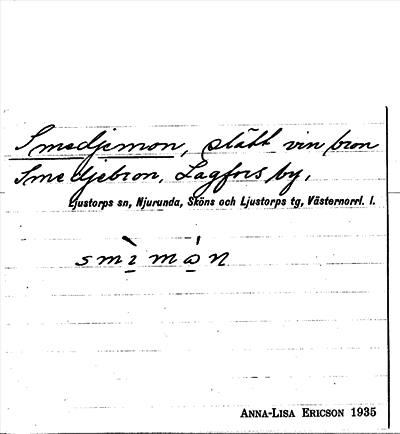 Smedjemon, slätt vin bron
Smedjebron, Lagfors by.
Ljustorps sn, Njurunda, Sköns och Ljustorps tg, Västernorrl. l.
smì món
ANNA-LISA ERICSON 1935